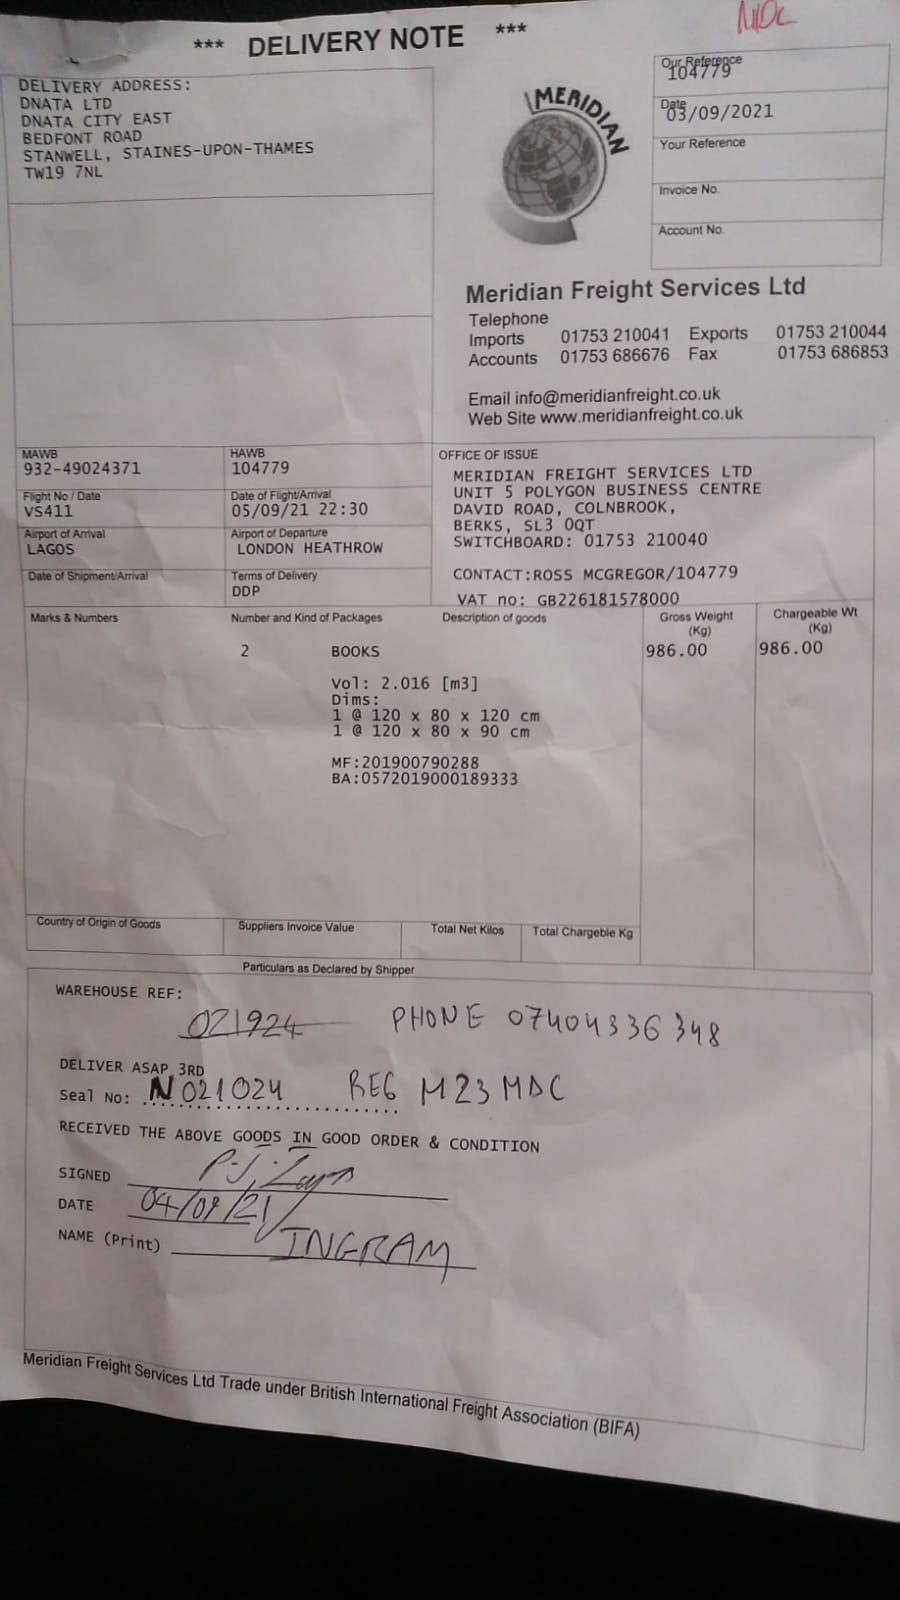 *** DELIVERY NOTE ***
DELIVERY ADDRESS:
DNATA LTD
DNATA CITY EAST
BEDFONT ROAD
STANWELL, STAINES-UPON-THAMES
TW19 7NL
MERIDIAN
Our Reference
104779
Date
03/09/2021
Your Reference
Invoice No.
Account No.
Meridian Freight Services Ltd
Telephone
Imports 01753 210041 Exports 01753 210044
Accounts 01753 686676 Fax 01753 686853
Email info@meridianfreight.co.uk
Web Site www.meridianfreight.co.uk
MAWB
932-49024371
HAWB
104779
Flight No / Date
VS411
Date of Flight/Arrival
05/09/21 22:30
Airport of Arrival
LAGOS
Airport of Departure
LONDON HEATHROW
Date of Shipment/Arrival
Terms of Delivery
DDP
OFFICE OF ISSUE
MERIDIAN FREIGHT SERVICES LTD
UNIT 5 POLYGON BUSINESS CENTRE
DAVID ROAD, COLNBROOK,
BERKS, SL3 0QT
SWITCHBOARD: 01753 210040
CONTACT:ROSS MCGREGOR/104779
VAT no: GB226181578000
Marks & Numbers
Number and Kind of Packages
Description of goods
Gross Weight
(Kg)
Chargeable Wt
(Kg)
2 BOOKS 986.00 986.00
Vol: 2.016 [m3]
Dims:
1 @ 120 x 80 x 120 cm
1 @ 120 x 80 x 90 cm
MF:201900790288
BA:0572019000189333
Country of Origin of Goods
Suppliers Invoice Value
Total Net Kilos
Total Chargeble Kg
Particulars as Declared by Shipper
WAREHOUSE REF:
021924 PHONE 07404336348
DELIVER ASAP 3RD
Seal No: N021024 REG M23 MDC
RECEIVED THE ABOVE GOODS IN GOOD ORDER & CONDITION
SIGNED
DATE 04/09/21
NAME (Print) INGRAM
Meridian Freight Services Ltd Trade under British International Freight Association (BIFA)